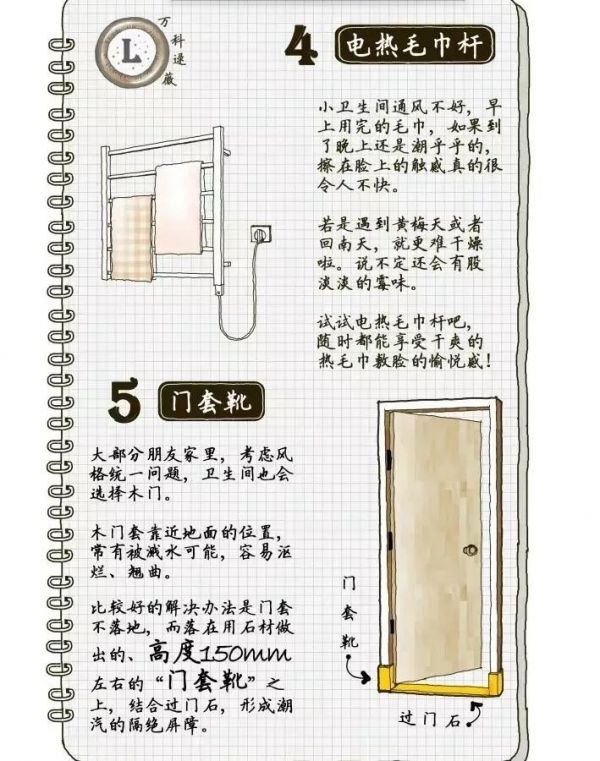 L
万科遂薇
4 电热毛巾杆
小卫生间通风不好，早
上用完的毛巾，如果到
了晚上还是潮乎乎的，
擦在脸上的触感真的很
令人不快。
若是遇到黄梅天或者
回南天，就更难干燥
啦。说不定还会有股
淡淡的霉味。
试试电热毛巾杆吧，
随时都能享受干爽的
热毛巾敷脸的愉悦感！
5 门套靴
大部分朋友家里，考虑风
格统一问题，卫生间也会
选择木门。
木门套靠近地面的位置，
常有被溅水可能，容易沤
烂、翘曲。
比较好的解决办法是门套
不落地，而落在用石材做
出的、高度150mm
左右的“门套靴”之
上，结合过门石，形成潮
汽的隔绝屏障。
门套靴
过门石